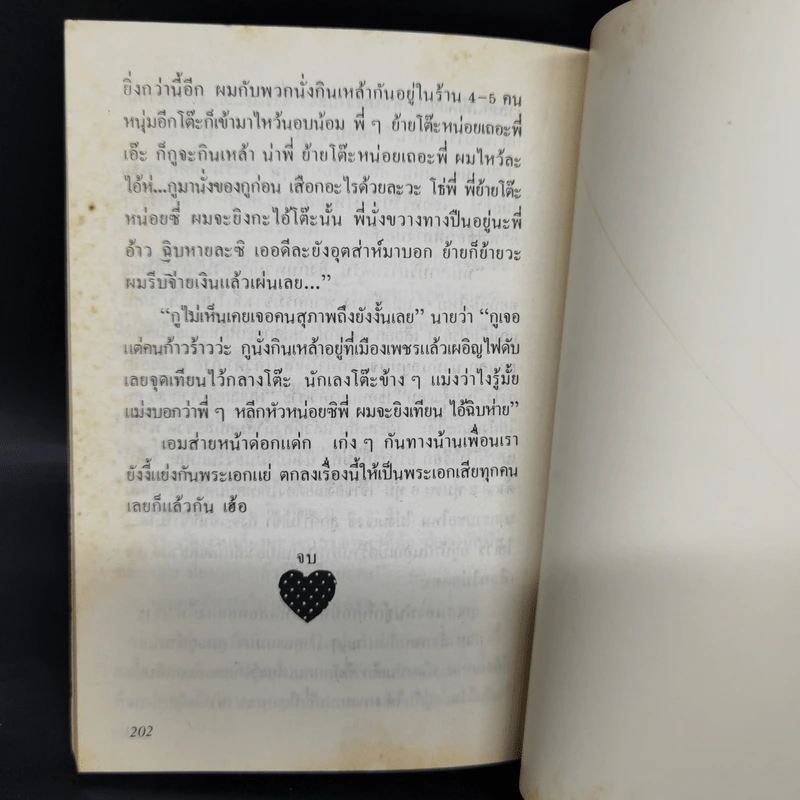 ยิ่งกว่านี้อีก ผมกับพวกนั่งกินเหล้ากันอยู่ในร้าน 4-5 คน
หนุ่มอีกโต๊ะก็เข้ามาไหว้นอบน้อม พี่ ๆ ย้ายโต๊ะหน่อยเถอะพี่
เอ๊ะ ก็กูจะกินเหล้า น่าพี่ ย้ายโต๊ะหน่อยเถอะพี่ ผมไหว้ละ
ไอ้ห่...กูมานั่งของกูก่อน เสือกอะไรด้วยละวะ โธ่พี่ พี่ย้ายโต๊ะ
หน่อยซี่ ผมจะยิงกะไอ้โต๊ะนั้น พี่นั่งขวางทางปืนอยู่นะพี่
อ้าว ฉิบหายละซิ เออดีละยังอุตส่าห์มาบอก ย้ายก็ย้ายวะ
ผมรีบจ่ายเงินแล้วเผ่นเลย...”
“กูไม่เห็นเคยเจอคนสุภาพถึงยังงั้นเลย” นายว่า “กูเจอ
แต่คนก้าวร้าวว่ะ กูนั่งกินเหล้าอยู่ที่เมืองเพชรแล้วเผอิญไฟดับ
เลยจุดเทียนไว้กลางโต๊ะ นักเลงโต๊ะข้าง ๆ แม่งว่าไงรู้มั้ย
แม่งบอกว่าพี่ ๆ หลีกหัวหน่อยซิพี่ ผมจะยิงเทียน ไอ้ฉิบห่าย”
เอมส่ายหน้าด่อกแด่ก เก่ง ๆ กันทางน้านเพื่อนเรา
ยังงี้แย่งกันพระเอกแย่ ตกลงเรื่องนี้ให้เป็นพระเอกเสียทุกคน
เลยก็แล้วกัน เฮ้อ
จบ
202